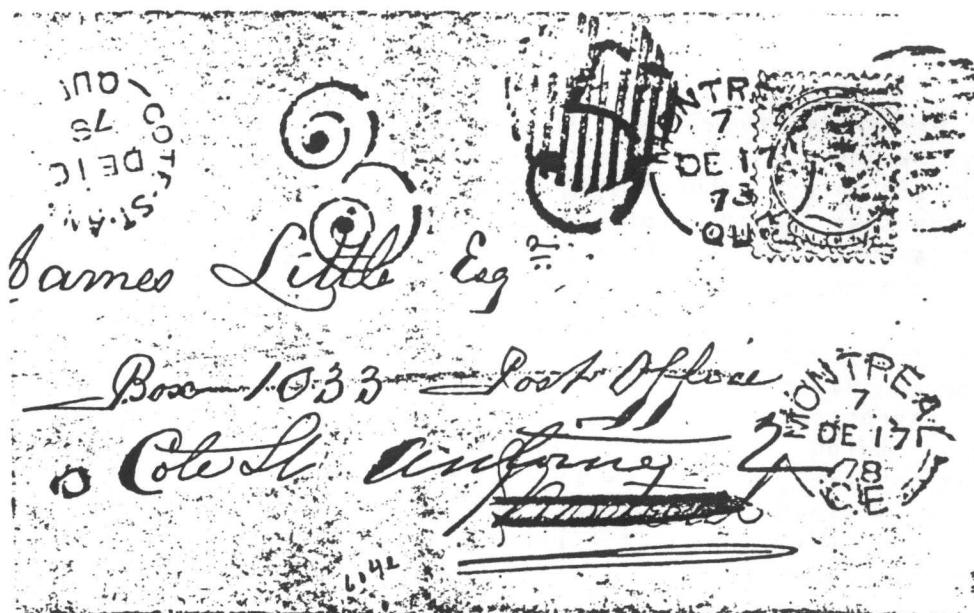 COT
ST. AN
DE 1C
7S
QUE
MONTR
7
DE 17
78
QUE
James Little Esq
Box 1033 Post Office
Cote St Antoine
MONTREAL
7
DE 17
78
CE